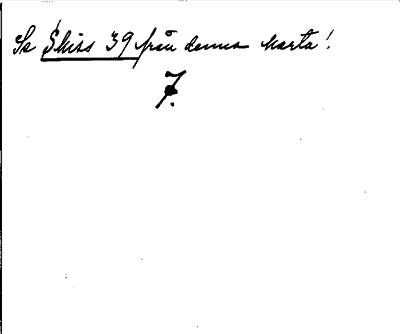 Se Skiss 39 från denna karta!
7.